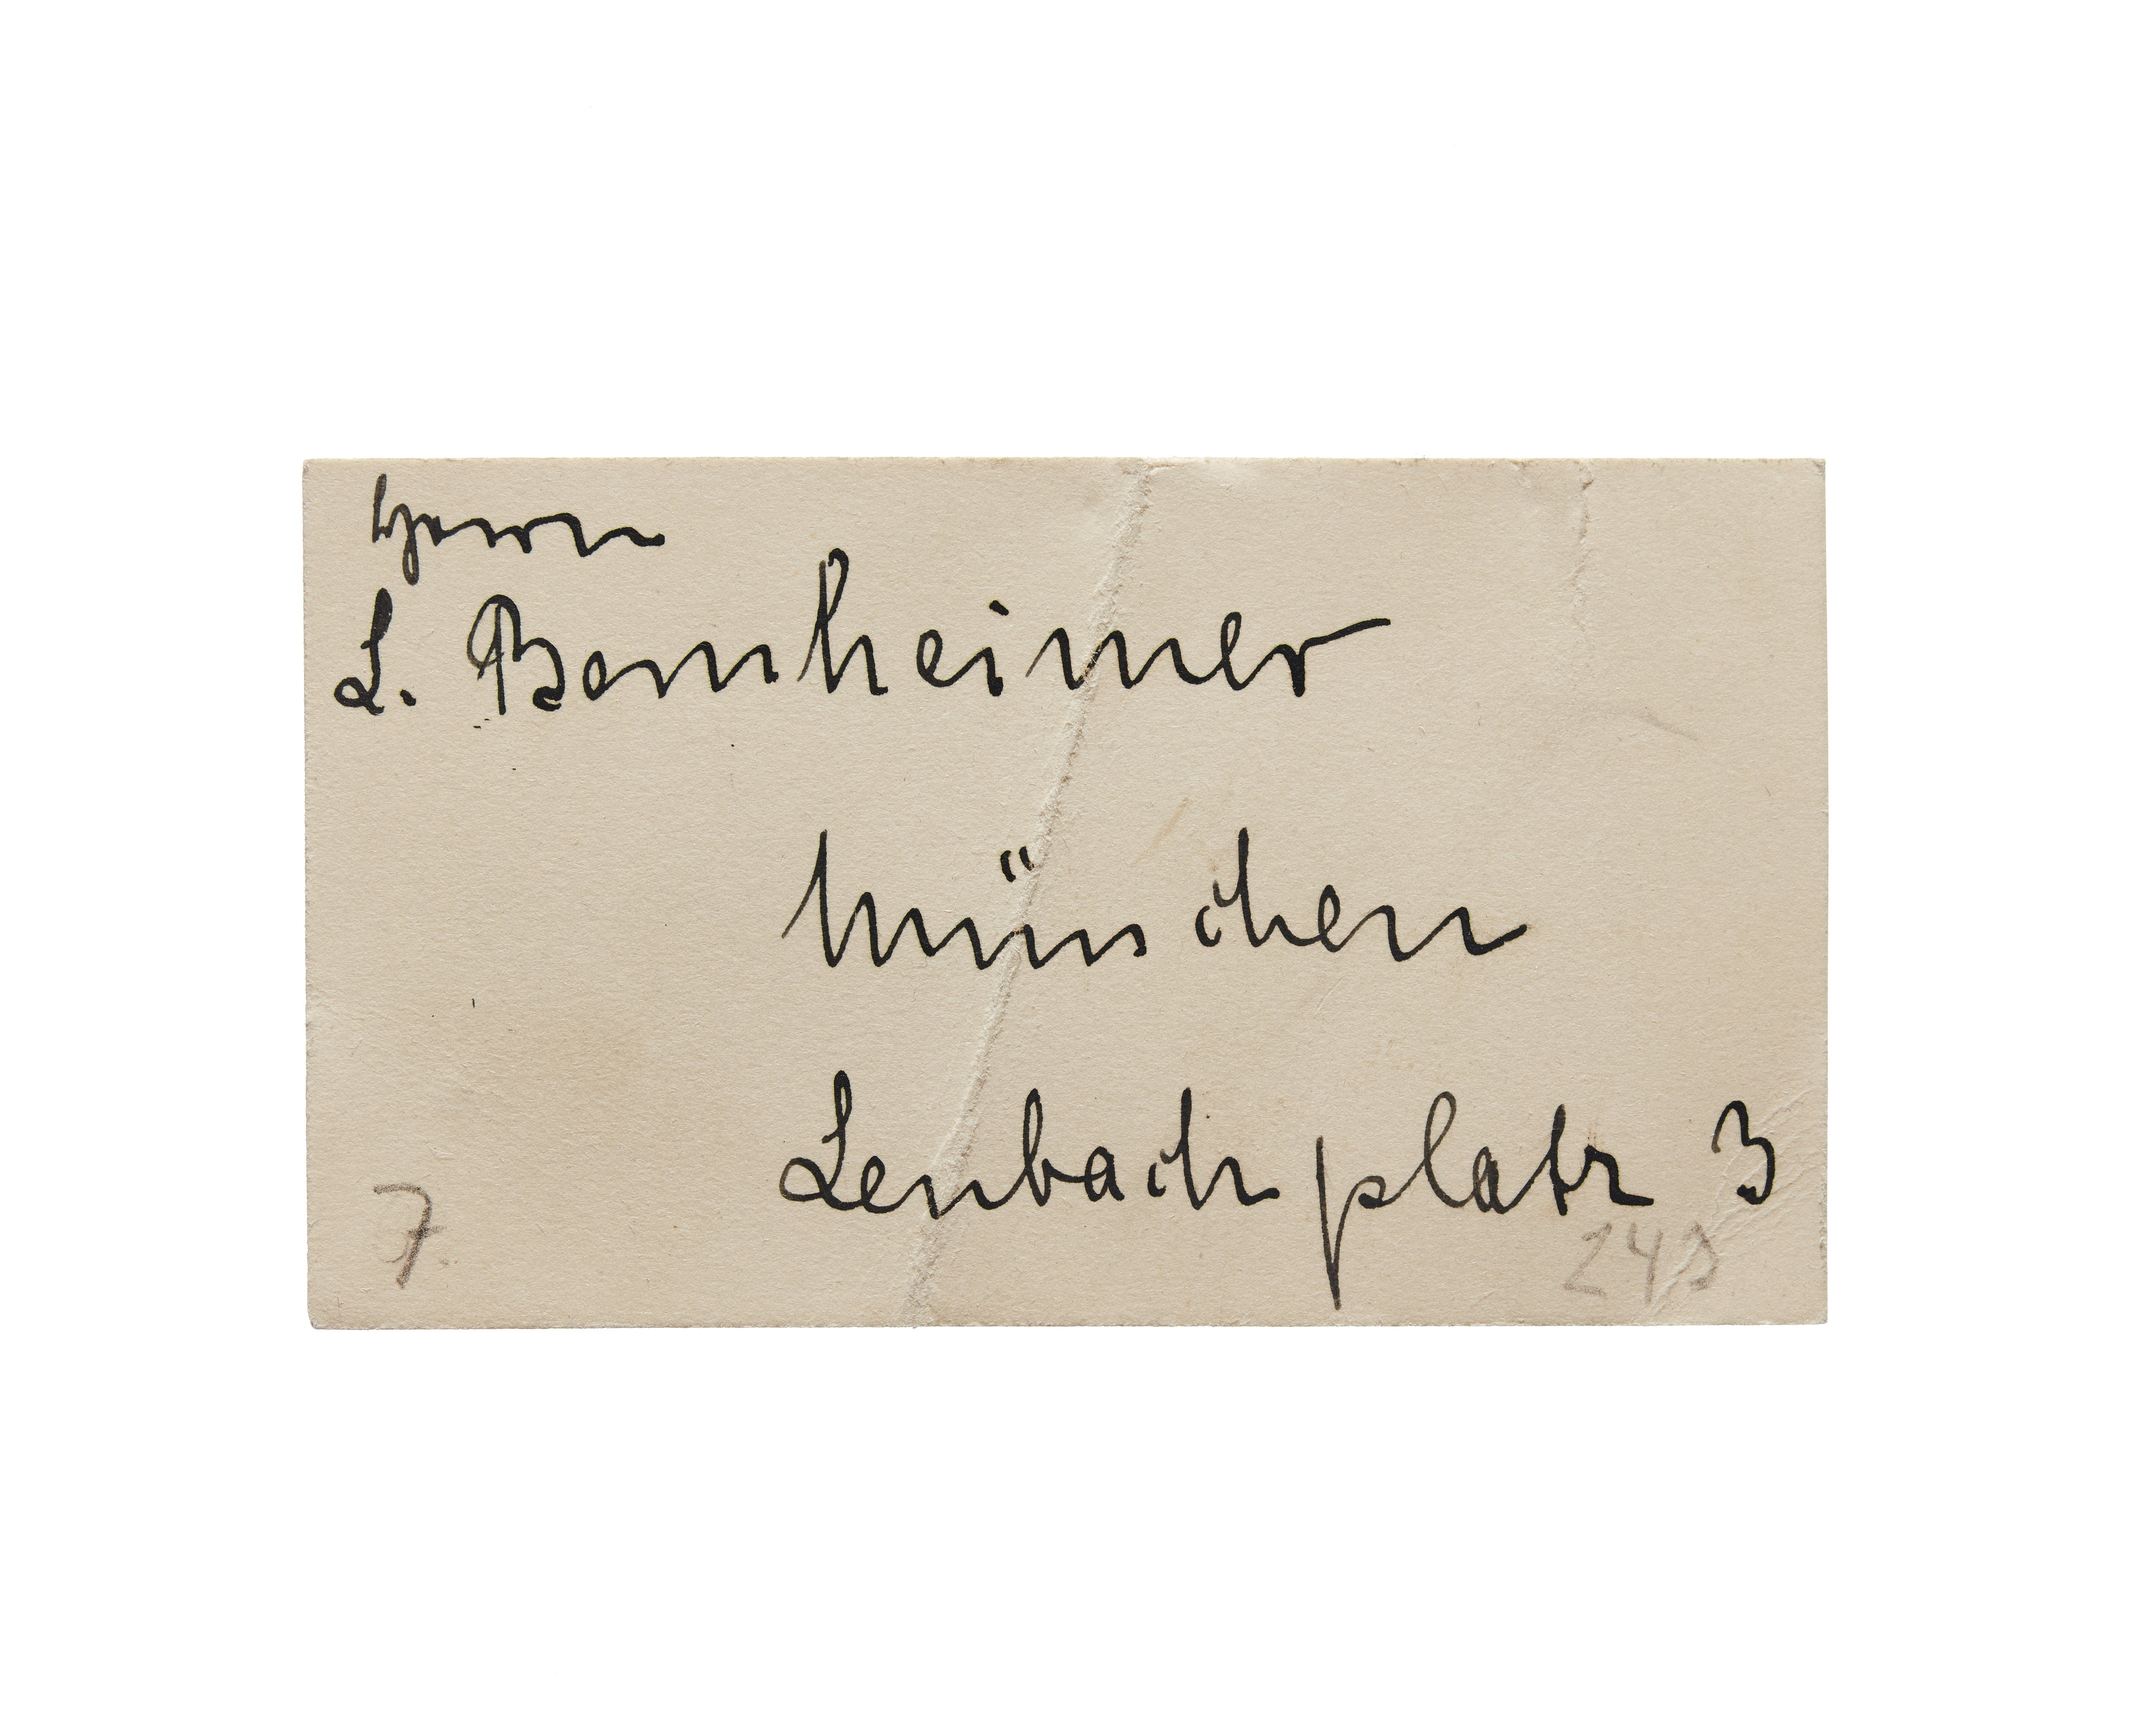 Herrn
L. Bernheimer
München
Lenbachplatz 3
7.